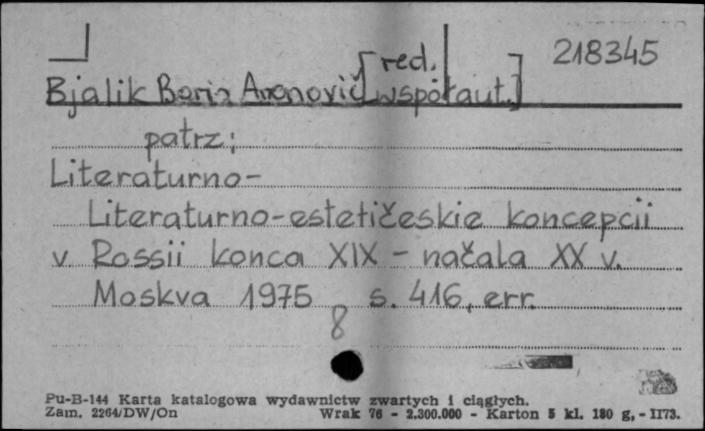 218345
Bjalik Boris Aronovič [red. współaut.]
patrz:
Literaturno-
Literaturno-estetičeskie koncepcii
v Rossii konca XIX - načala XX v.
Moskva 1975 s. 416, err.
8
Pu-B-144 Karta katalogowa wydawnictw zwartych i ciągłych.
Zam. 2264/DW/On Wrak 76 - 2.300.000 - Karton 5 kl. 180 g, - II73.